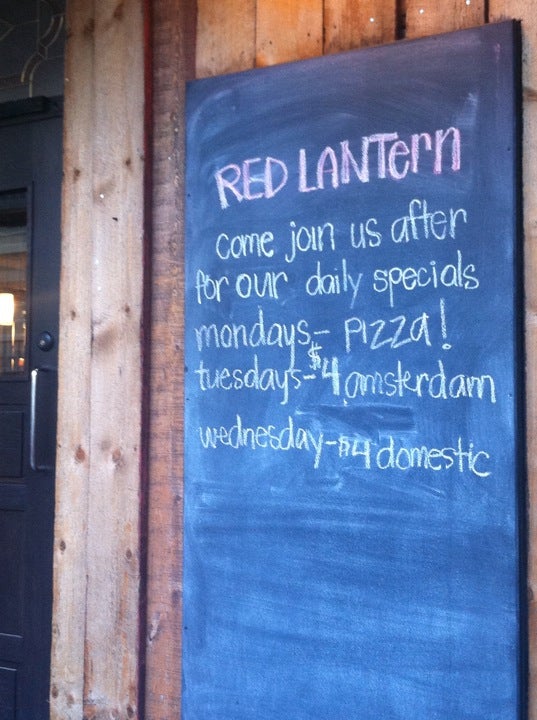 RED LANTern
come join us after
for our daily specials
mondays- PIZZA!
tuesdays-$4 amsterdam
wednesday-$4 domestic